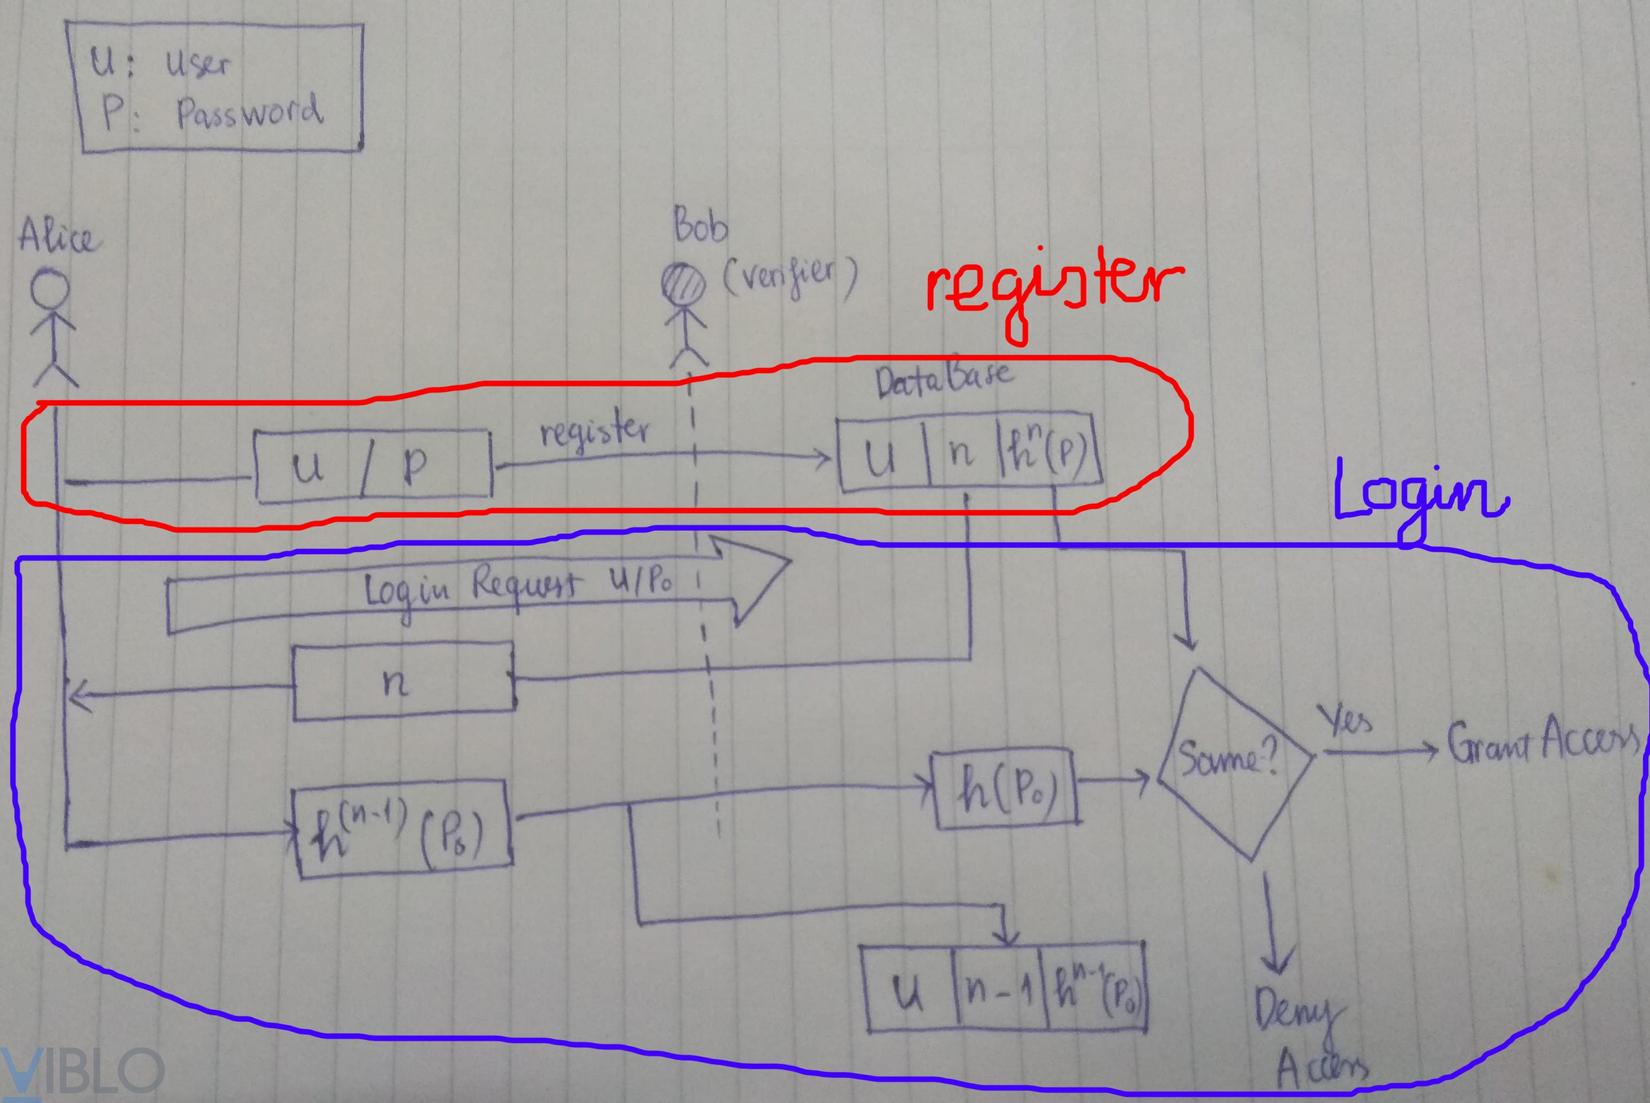 U: User
P: Password
Alice
Bob
(verifier)
register
DataBase
U / P
register
U | n | hⁿ(P)
Login
Login Request U/P₀
n
h⁽ⁿ⁻¹⁾(P₀)
h(P₀)
Same?
Yes
Grant Access
U | n-1 | hⁿ⁻¹(P₀)
Deny
Access
VIBLO